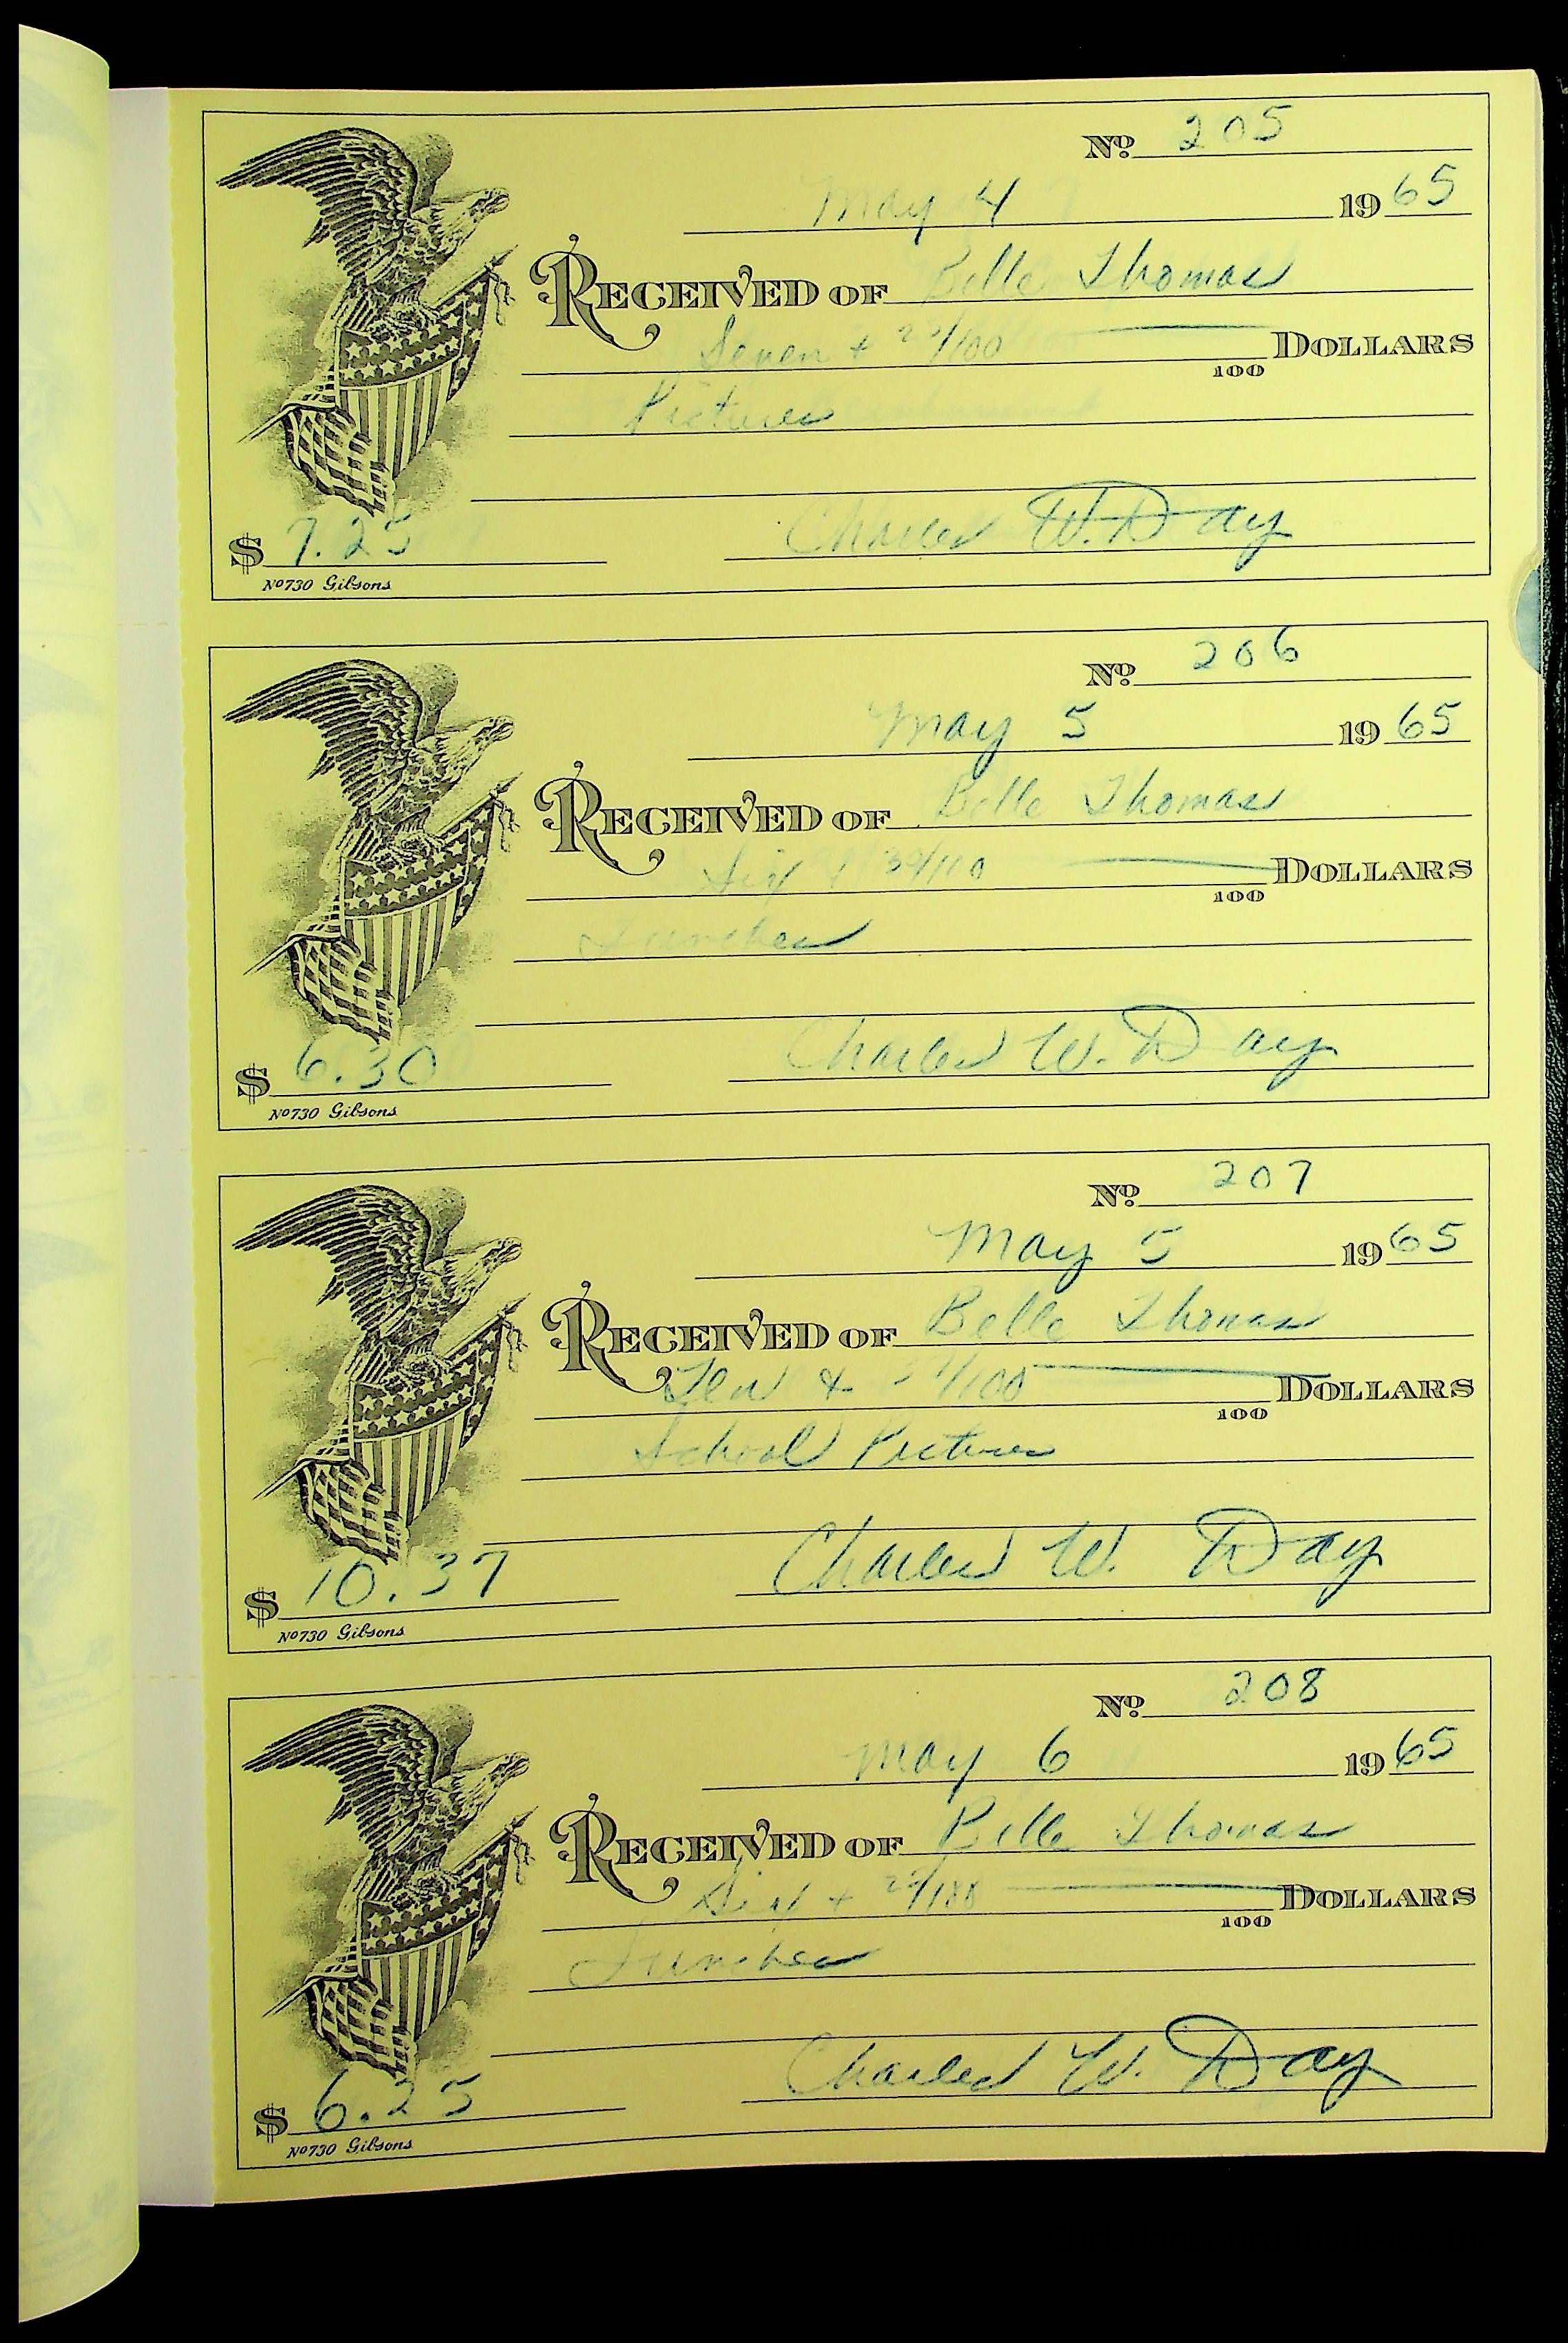 No. 205
May 4 1965
RECEIVED OF Belle Thomas
Seven + 25/100 DOLLARS
100
Pictures
Charles W. Day
$ 7.25
No 730 Gibsons
No. 206
May 5 1965
RECEIVED OF Belle Thomas
Six + 30/100 DOLLARS
100
Lunches
Charles W. Day
$ 6.30
No 730 Gibsons
No. 207
May 5 1965
RECEIVED OF Belle Thomas
Ten + /100 DOLLARS
100
School Pictures
Charles W. Day
$ 10.37
No 730 Gibsons
No. 208
May 6 1965
RECEIVED OF Belle Thomas
Six + 25/100 DOLLARS
100
Lunches
Charles W. Day
$ 6.25
No 730 Gibsons